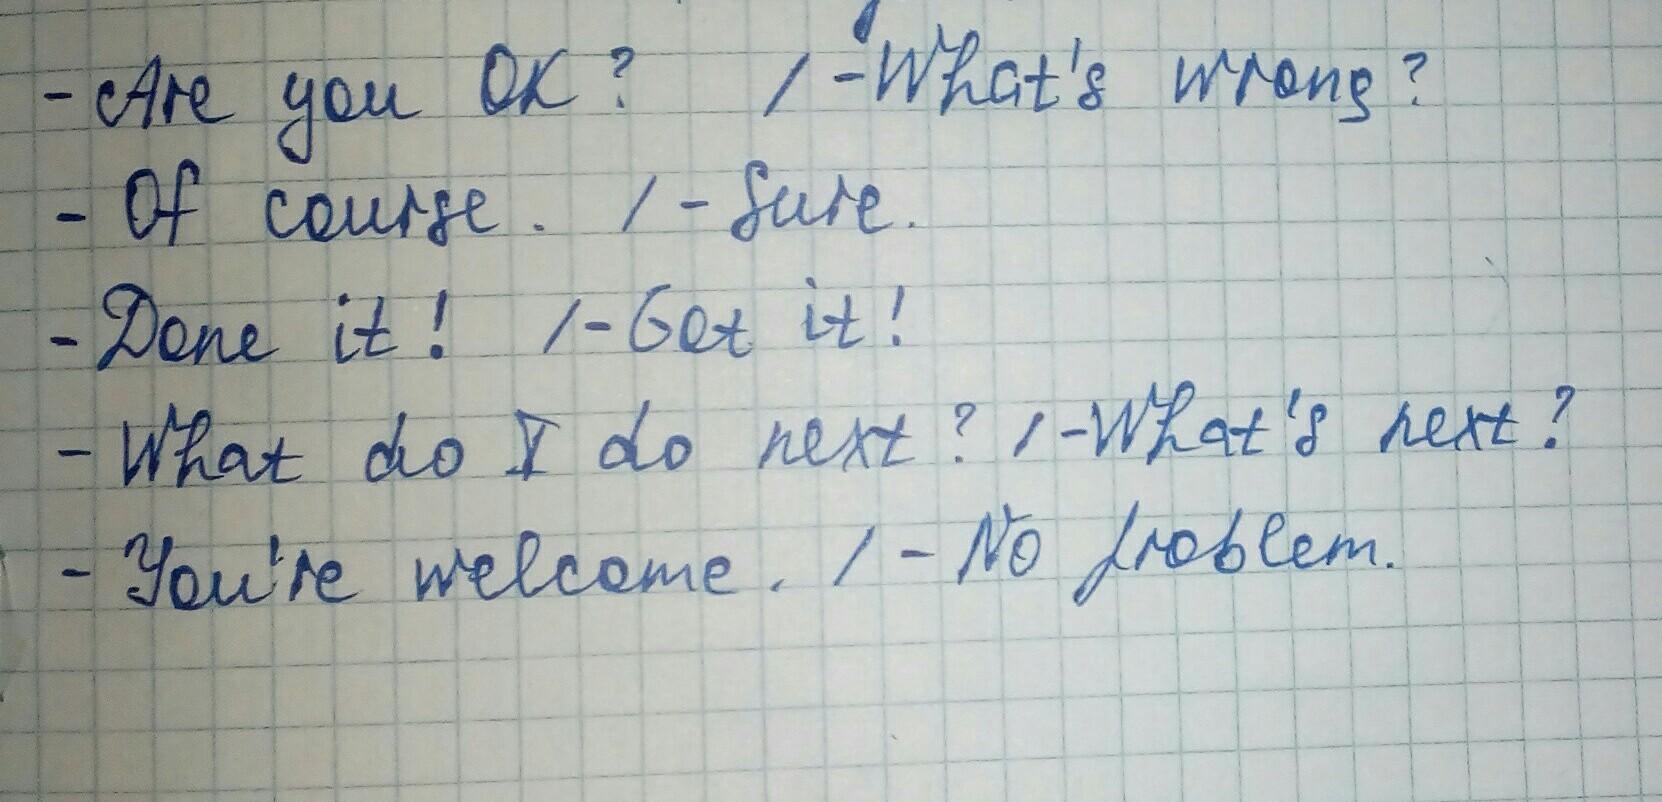 - Are you OK? / - What's wrong?
- Of course. / - Sure.
- Done it! / - Got it!
- What do I do next? / - What's next?
- You're welcome. / - No problem.